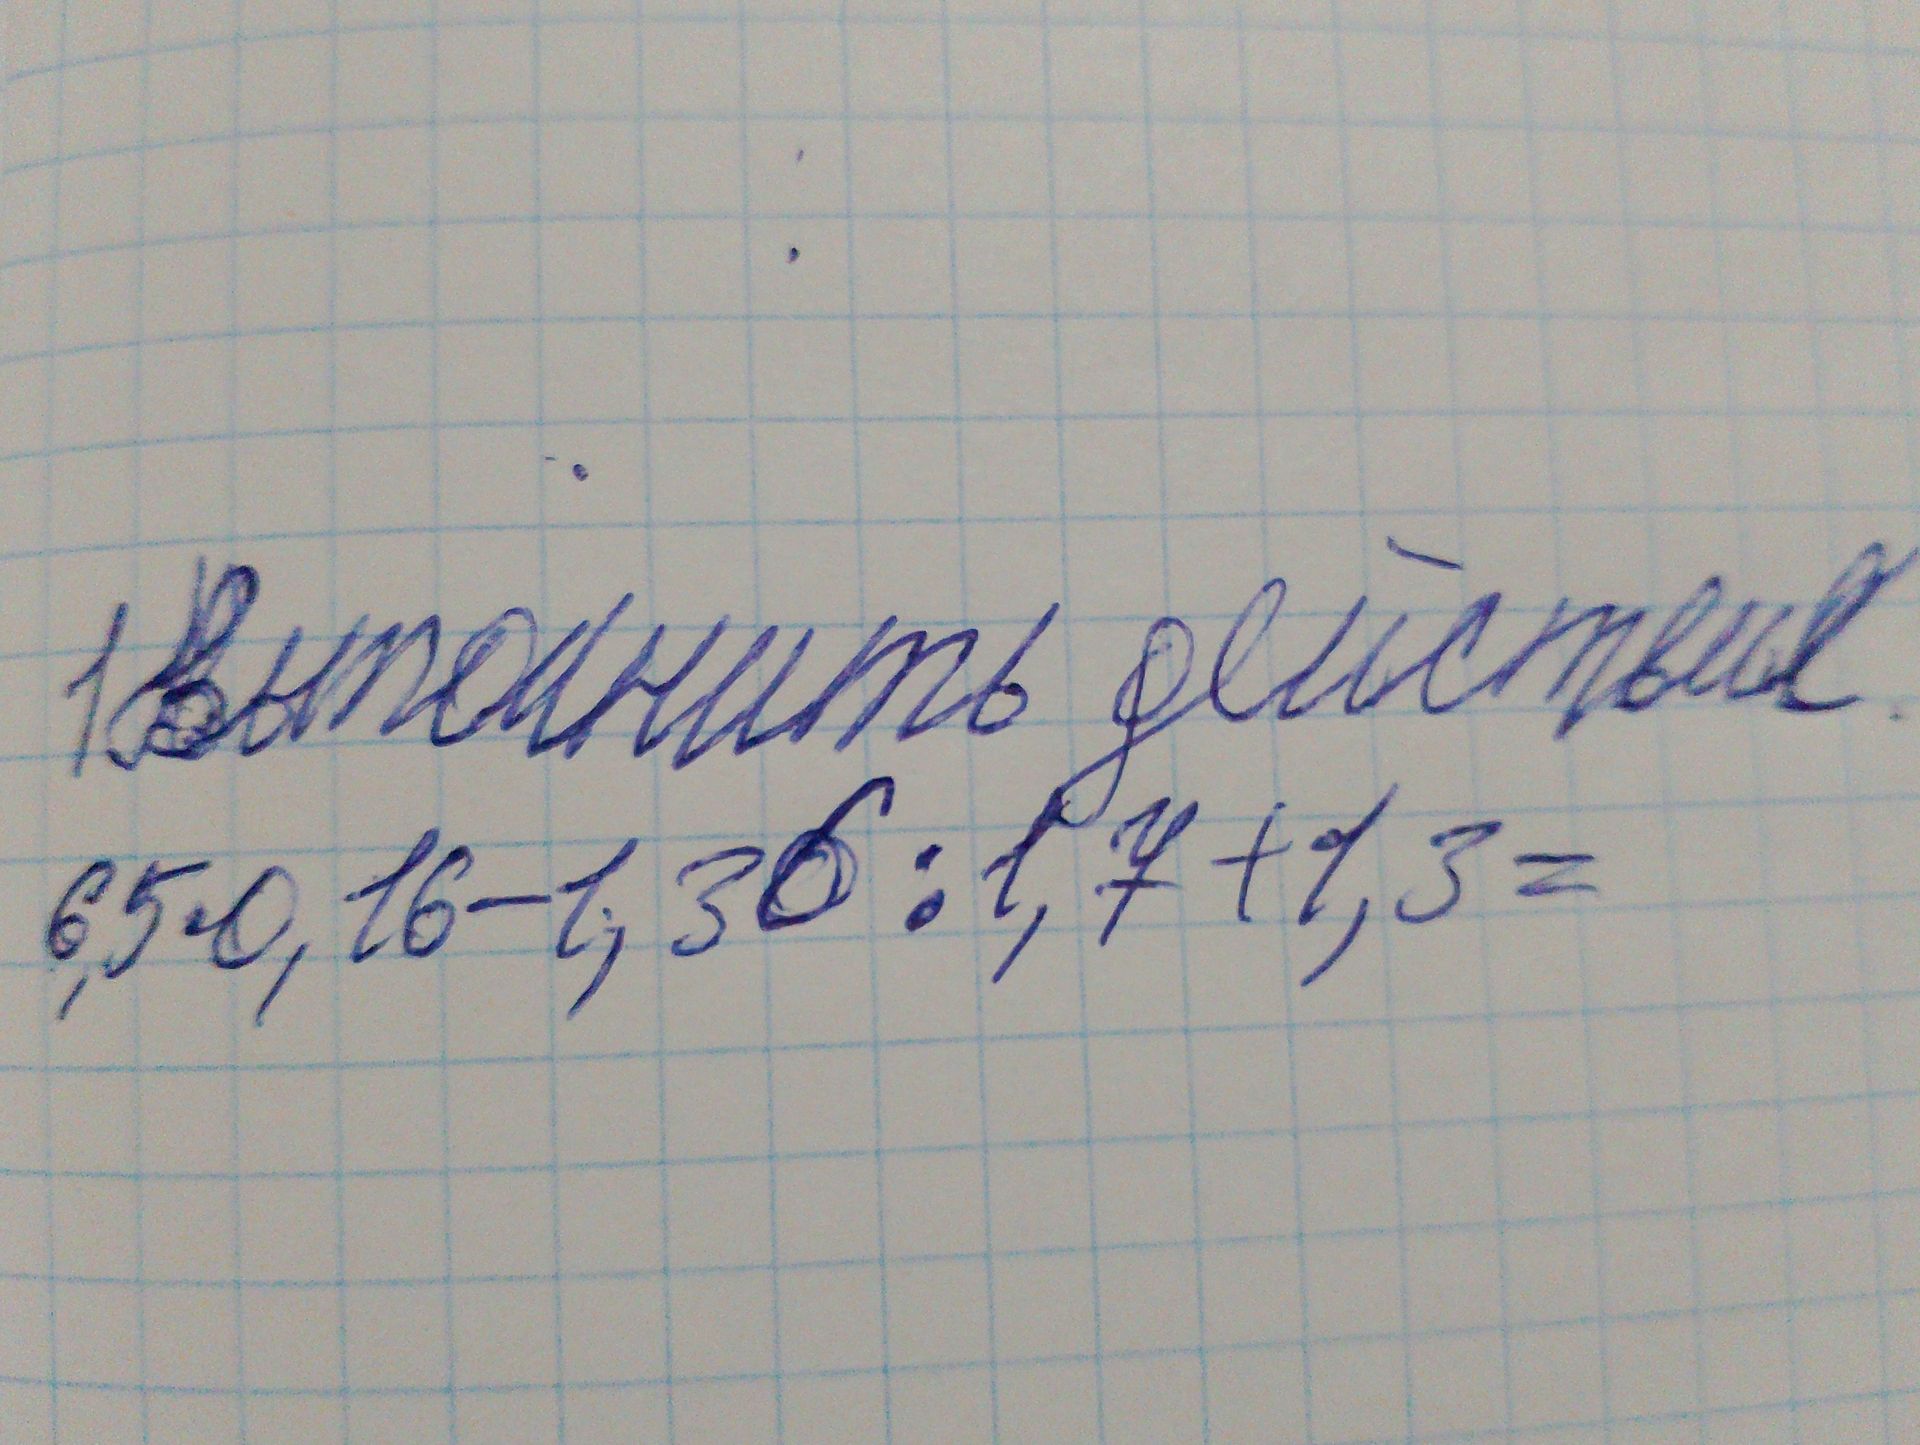 1 Выполнить действие.
6,5·0,16-1,36:1,7+1,3=